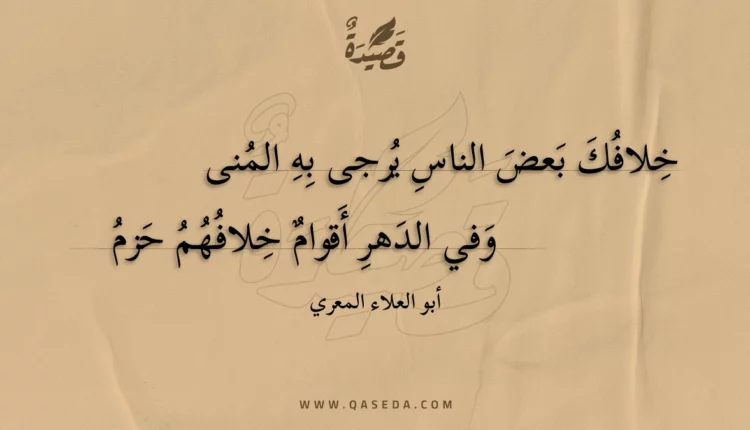 قَصِيْدَةٌ
خِلافُكَ بَعضَ الناسِ يُرجى بِهِ المُنى
وَفي الدَهرِ أَقوامٌ خِلافُهُمُ حَزمُ
أبو العلاء المعري
WWW.QASEDA.COM